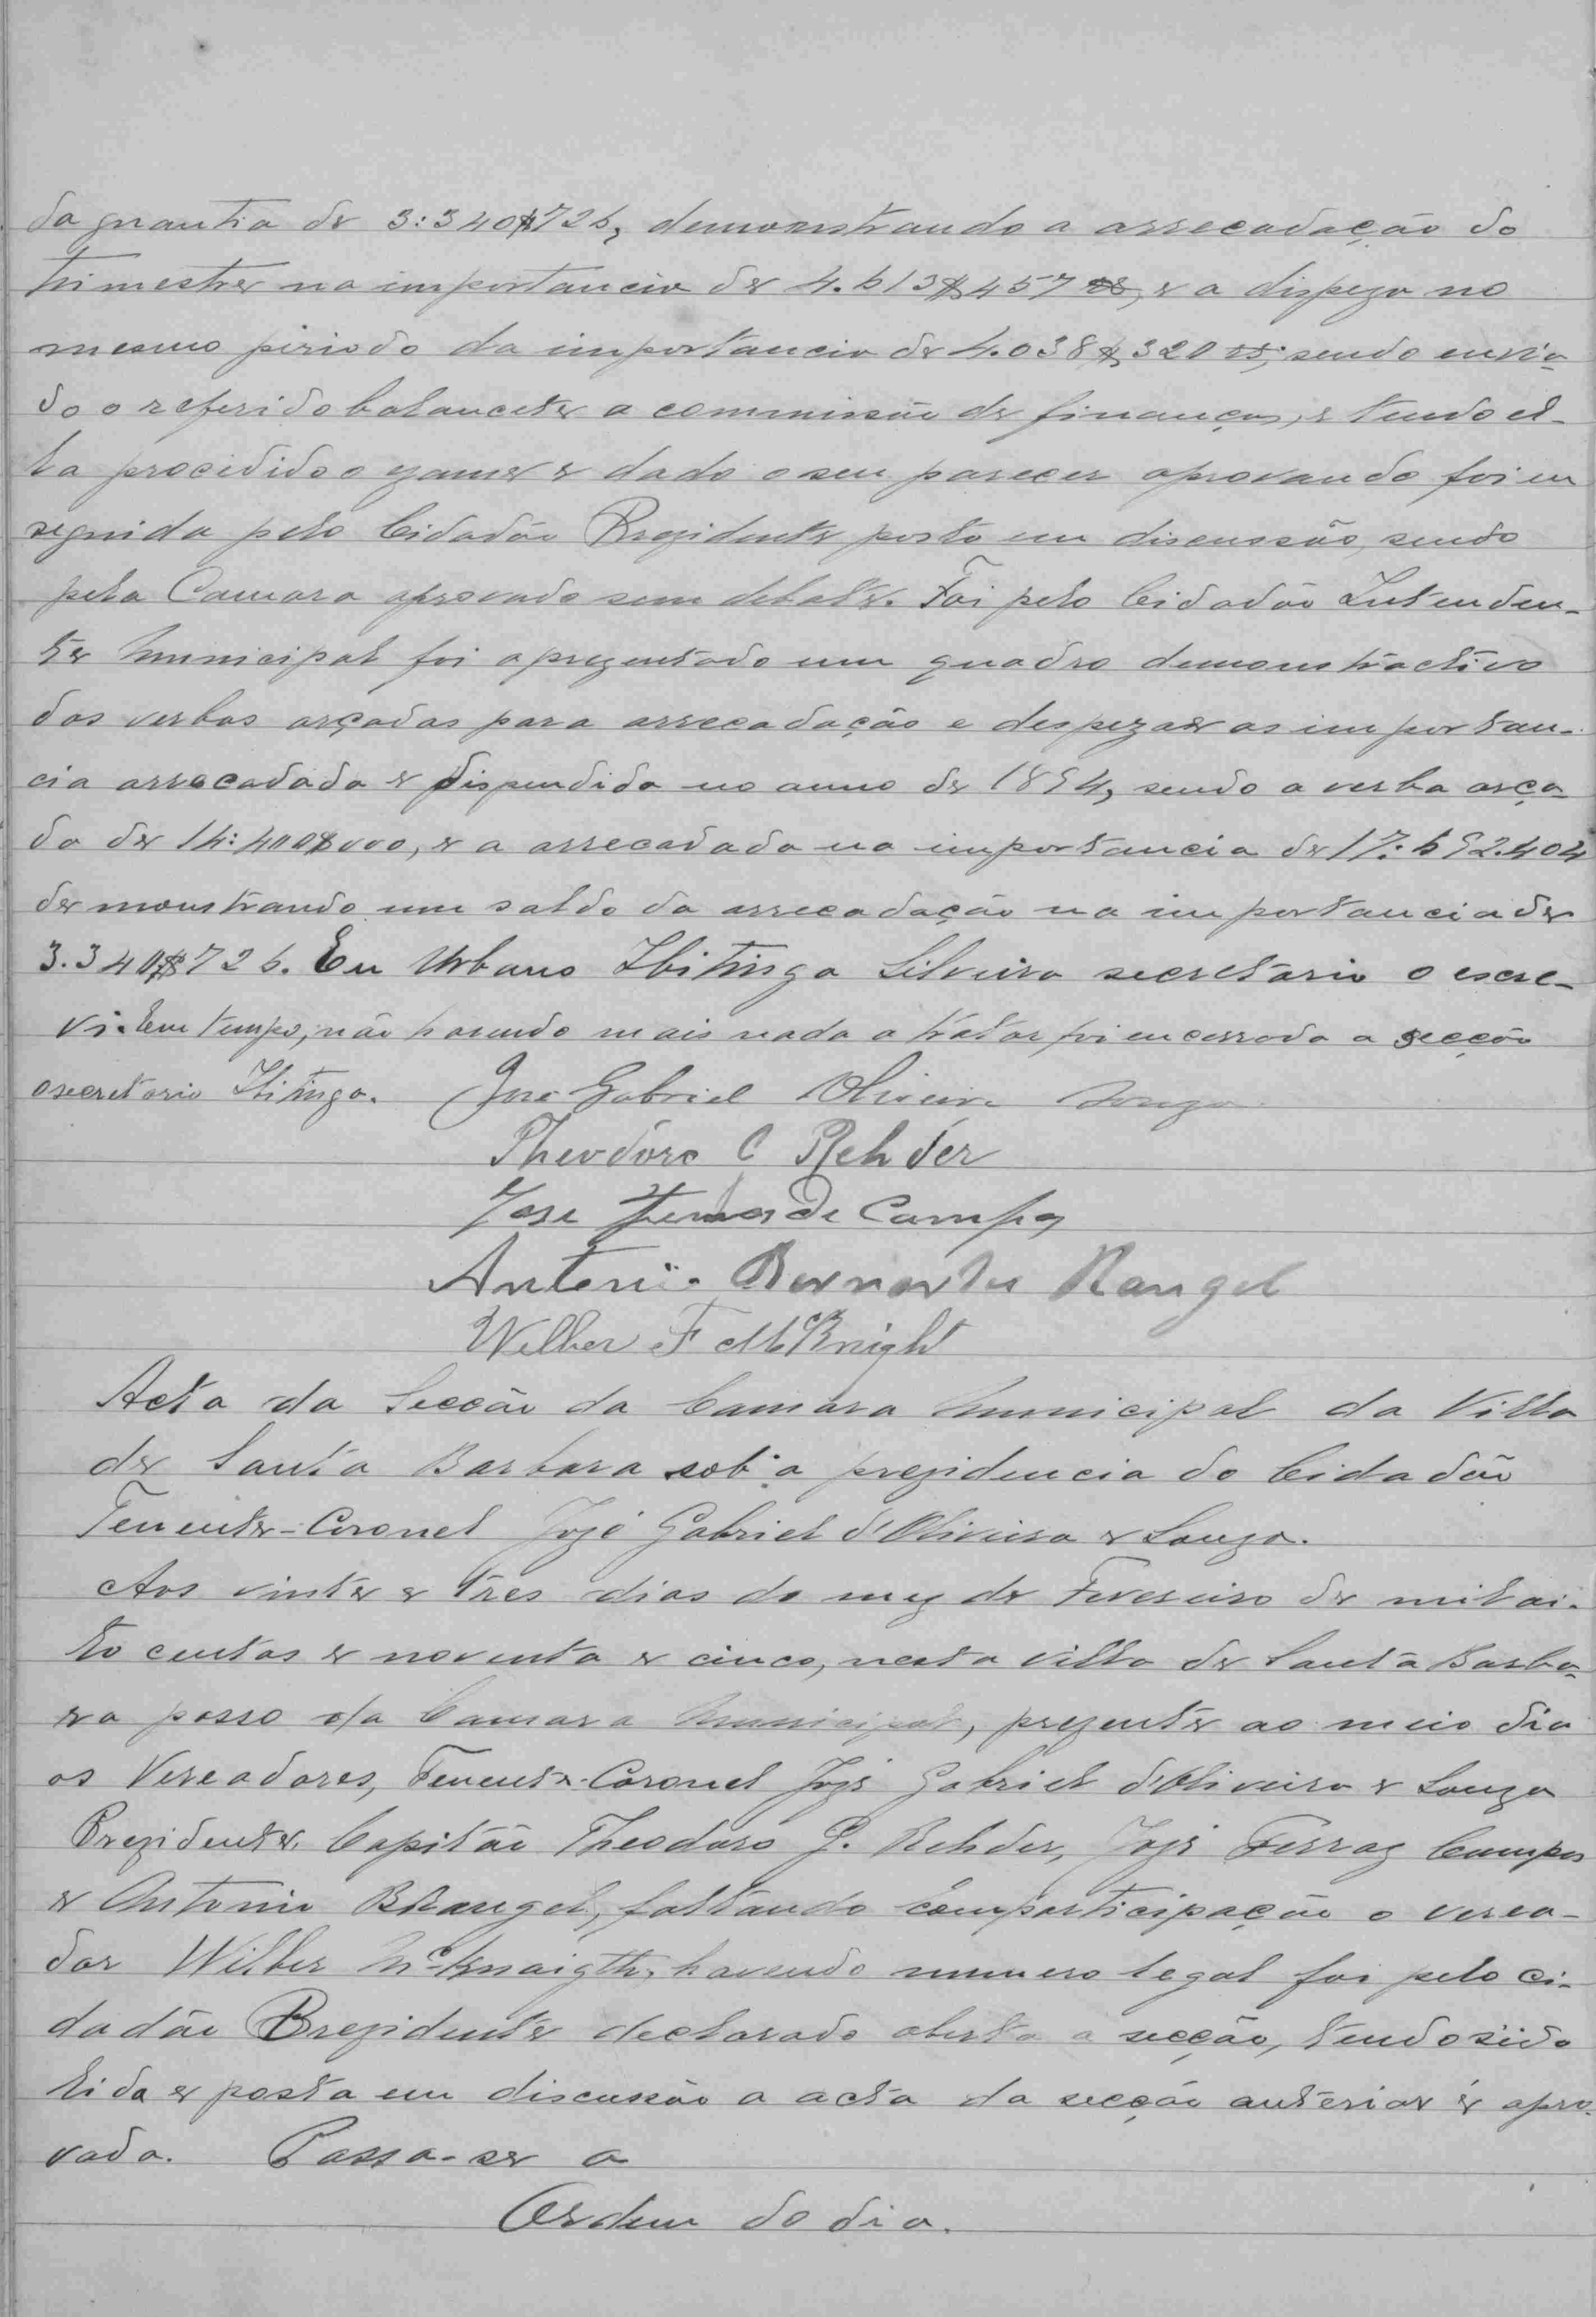 da quantia de 3:340$726, demonstrando a arrecadação do
trimestre na importancia de 4.613$457 rs, e a dispeza no
mesmo piriodo da importancia de 4.038$320 rs; sendo envia-
do o referido balancete a commissão de finanças, e tendo es-
ta procedido o ezame e dado o seu parecer aprovando foi en
seguida pelo Cidadão Prezidente posto em discussão, sendo
pela Camara aprovado sem debate. Foi pelo Cidadão Intenden-
te Municipal foi aprezentado um quadro demonstractivo
das verbas arçadas para arrecadação e despeza e as importan-
cia arrecadada e dispendida no anno de 1894, sendo a verba arça-
da de 14:400$000, e a arrecadada na importancia de 17:692.404
demonstrando um saldo da arrecadação na importancia de
3.340$726. Eu Urbano Ibitinga Silveira secretario o escre-
vi. Em tempo, não havendo mais nada a tratar foi encerrada a secção
o secretario Ibitinga. José Gabriel Oliveira Souza
Theodoro C Rehder
Jose Ferras de Campos
Antonio Bernardes Rangel
Wilber F McKnight
Acta da Secção da Camara Municipal da Villa
de Santa Barbara sob a prezidencia do Cidadão
Tenente-Coronel Jozé Gabriel d'Oliveira e Souza.
Aos vinte e tres dias do mez de Fevereiro de mil oi-
to centos e noventa e cinco, nesta villa de Santa Barba-
ra passo da Camara Municipal, prezente ao meio dia
os Vereadores, Tenente-Coronel Jozé Gabriel d'Oliveira e Souza
Prezidente, Capitão Theodoro G. Rehder, Jozé Ferraz Campos
e Antonio B Rangel, faltando com participação o verea-
dor Wilber McKnaigth, havendo numero legal foi pelo ci-
dadão Prezidente declarado aberta a secção, tendo sido
lida e posta em discussão a acta da secção anterior e apro-
vada. Passa-se a
Ordem do dia.